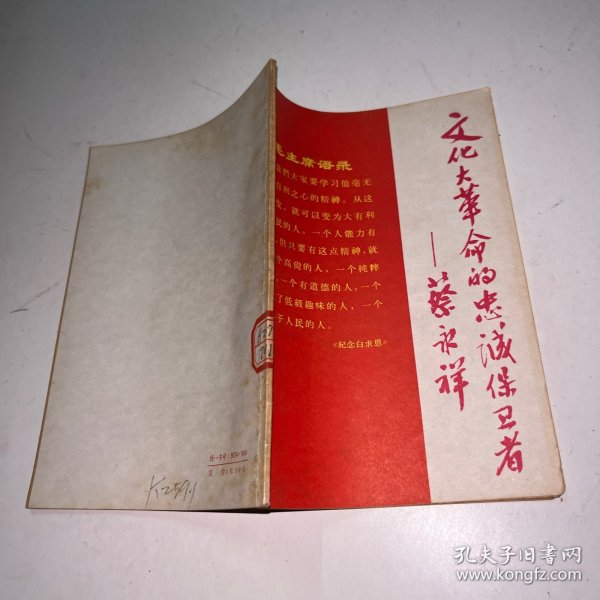 文化大革命的忠诚保卫者
——蔡永祥
主席语录
我們大家要学习他毫无
自利之心的精神。从这
点,就可以变为大有利
民的人。一个人能力有
,但只要有这点精神,就
个高尚的人,一个純粹
,一个有道德的人,一个
了低級趣味的人,一个
于人民的人。
《紀念白求恩》
K259.1
孔夫子旧书网
www.kongfz.com